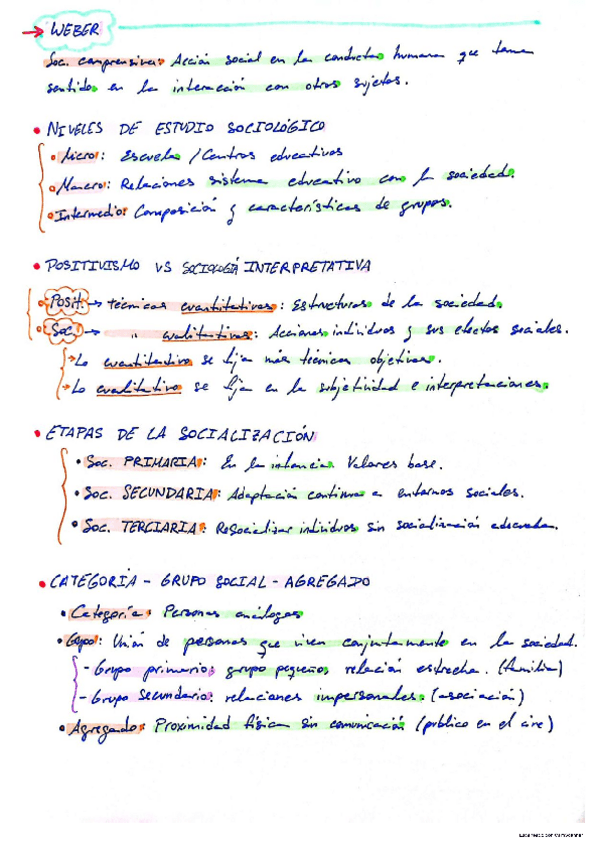 → WEBER
Soc. comprensiva: Acción social en la conducta humana que toma
sentido en la interacción con otros sujetos.
• NIVELES DE ESTUDIO SOCIOLÓGICO
• Micro: Escuelas / Centros educativos
• Macro: Relaciones sistema educativo con la sociedad.
• Intermedio: Composición y características de grupos.
• POSITIVISMO VS SOCIOLOGÍA INTERPRETATIVA
• Posit. → técnicas cuantitativas: Estructuras de la sociedad.
• Soc. → " cualitativas: Acciones individuos y sus efectos sociales.
→ Lo cuantitativo se fija más técnicas objetivas.
→ Lo cualitativo se fija en la subjetividad e interpretaciones.
• ETAPAS DE LA SOCIALIZACIÓN
• Soc. PRIMARIA: En la infancia. Valores base.
• Soc. SECUNDARIA: Adaptación continua a entornos sociales.
• Soc. TERCIARIA: ReSocializar individuos sin socialización adecuada.
• CATEGORÍA - GRUPO SOCIAL - AGREGADO
• Categoría: Personas análogas
• Grupo: Unión de personas que viven conjuntamente en la sociedad.
- Grupo primario: grupo pequeño, relación estrecha. (familia)
- Grupo Secundario: relaciones impersonales. (asociación)
• Agregado: Proximidad física sin comunicación (público en el cine)